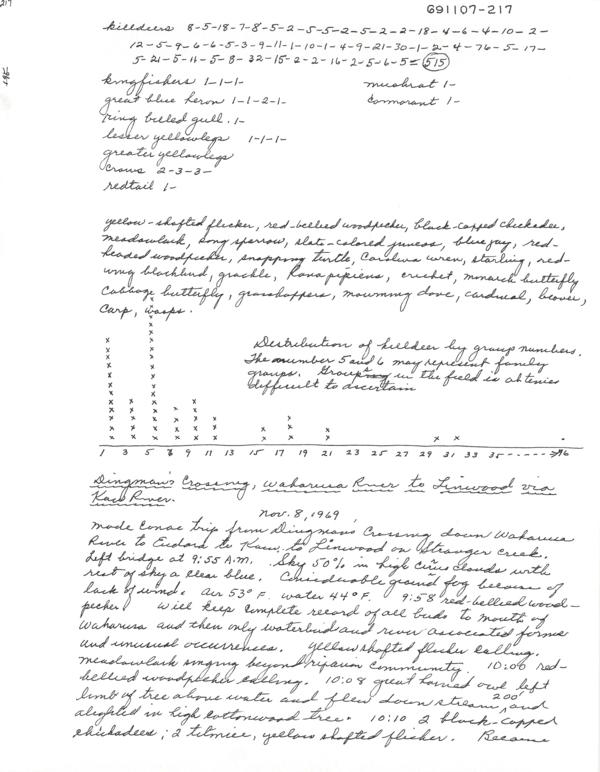 217
691107-217
killdeers 8-5-18-7-8-5-2-5-5-2-5-2-2-18-4-6-4-10-2-
12-5-9-6-6-5-3-9-11-1-10-1-4-9-21-30-1-2-4-76-5-17-
5-21-5-11-5-8-32-15-2-2-16-2-5-6-5=515
kingfishers 1-1-1-
muskrat 1-
great blue heron 1-1-2-1-
cormorant 1-
ring billed gull. 1-
lesser yellowlegs 1-1-1-
greater yellowlegs
crows 2-3-3-
redtail 1-
yellow-shafted flicker, red-bellied woodpecker, black-capped chickadee,
meadowlark, song sparrow, slate-colored juncos, blue jay, red-
headed woodpecker, snapping turtle, Carolina wren, starling, red-
wing blackbird, grackle, Rana pipiens, cricket, monarch butterfly
cabbage butterfly, grasshoppers, mourning dove, cardinal, beaver,
carp, wasps.
Distribution of killdeer by group numbers.
The number 5 and 6 may represent family
groups. Groups in the field is ofttimes
difficult to ascertain
1 3 5 7 8 9 11 13 15 17 19 21 23 25 27 29 31 33 35 -----→76
Dingman's Crossing, Wakarusa River to Linwood via
Kaw River.
Nov. 8, 1969
made canoe trip from Dingman's Crossing down Wakarusa
River to Eudora to Kaw, to Linwood on Stranger Creek.
Left bridge at 9:55 A.M. Sky 50% in high cirrus clouds with
rest of sky a clear blue. Considerable ground fog because of
lack of wind. Air 53° F. water 44° F. 9:58 red-bellied wood-
pecker. Will keep complete record of all birds to mouth of
Wakarusa and then only waterbird and river associated forms
and unusual occurrences. yellow shafted flicker calling.
meadowlark singing beyond riparian community. 10:00 red-
bellied woodpecker calling. 10:08 great horned owl left
limb of tree above water and flew down stream 200', and
alighted in high cottonwood tree. 10:10 2 black-capped
chickadees; 2 titmice, yellow shafted flicker. Became